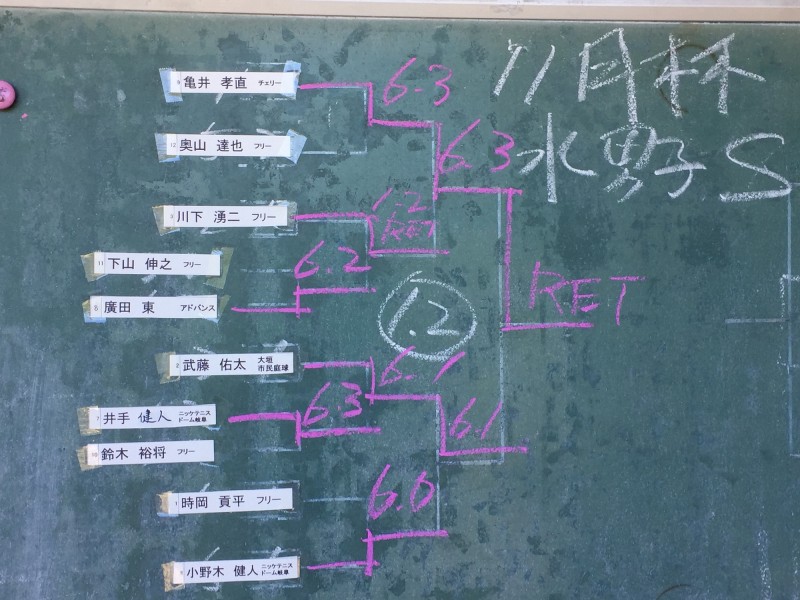 11月杯
水男子S
亀井 孝直 チェリー
6.3
奥山 達也 フリー
6.3
川下 湧二 フリー
1-2
RET
下山 伸之 フリー
6.2
廣田 東 アドバンス
RET
1.2
武藤 佑太 大垣市民庭球
6.1
井手 健人 ニッケテニスドーム岐阜
6.3
6.1
鈴木 裕将 フリー
時岡 貢平 フリー
6.0
小野木 健人 ニッケテニスドーム岐阜